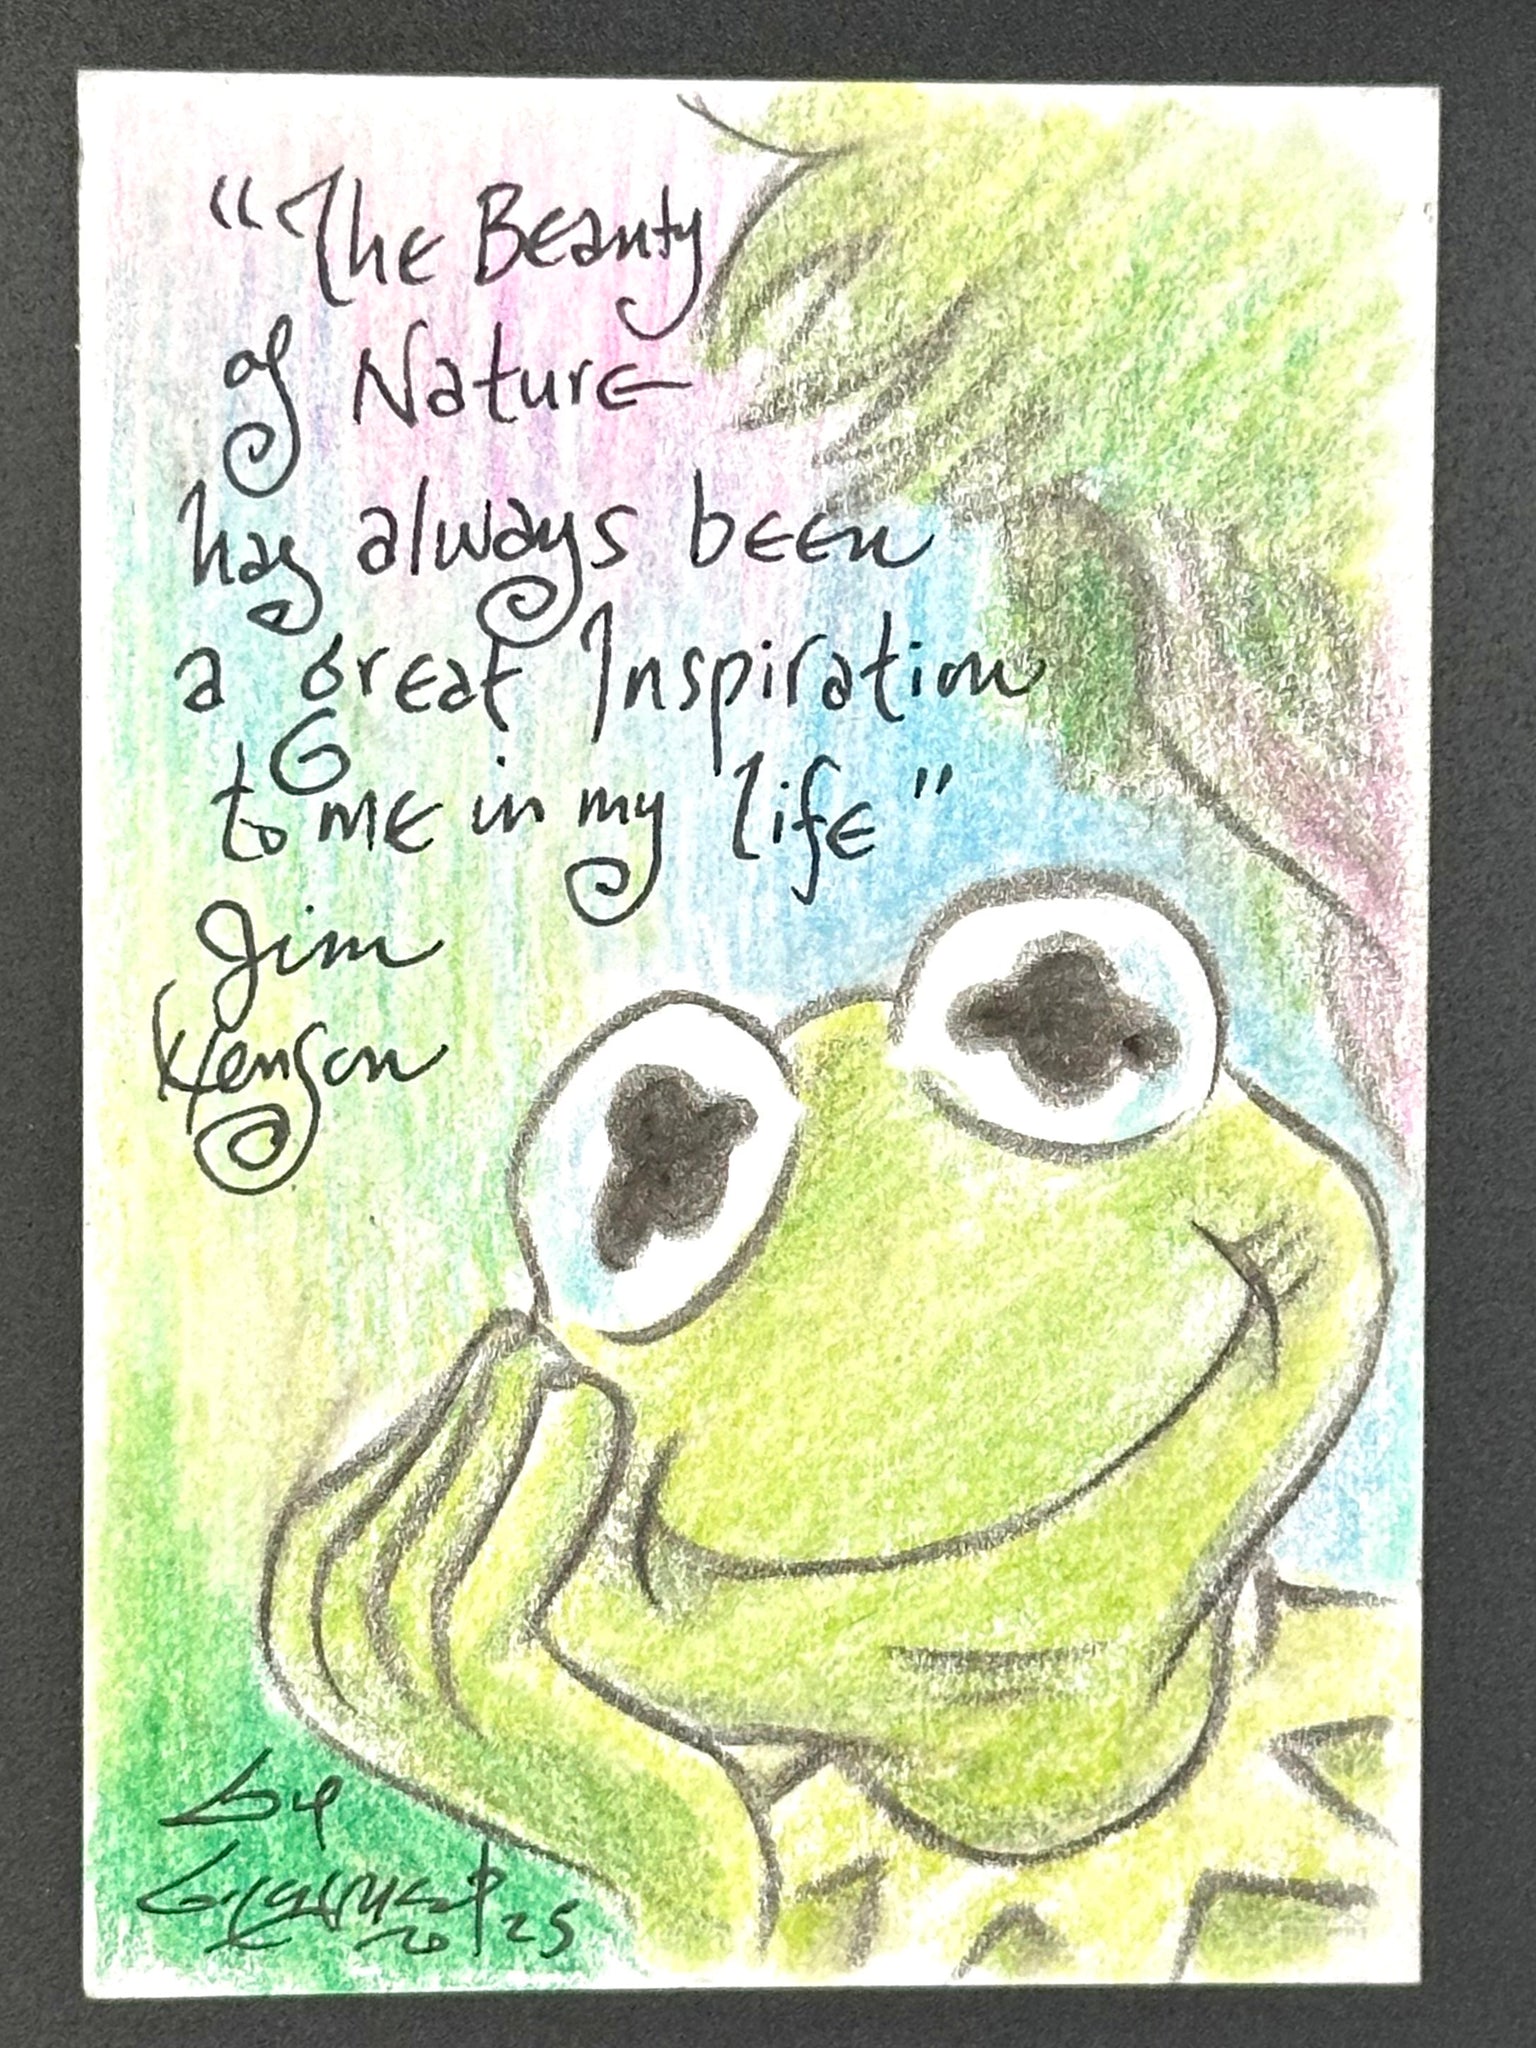 "The Beauty
of Nature
has always been
a Great Inspiration
to me in my life"
Jim
Henson
by
2025